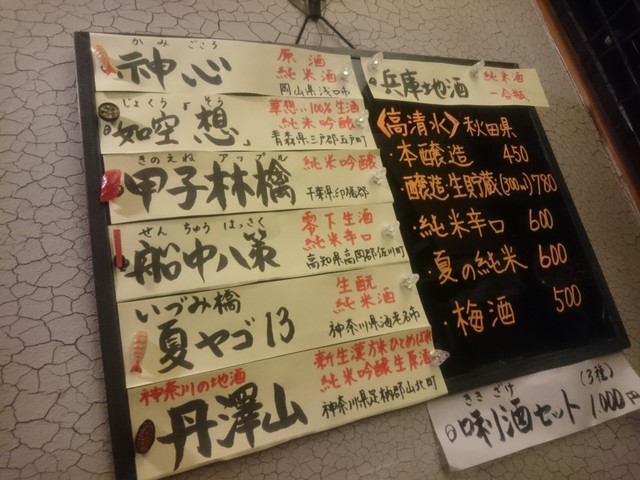 かみごころ
神心
原酒
純米酒
岡山県浅口市
じょくう
そう
如空「想」
華想い100%生酒
純米吟醸
青森県三戸郡五戸町
きのえね アップル
甲子林檎
純米吟醸
千葉県印旛郡
せんちゅうはっさく
船中八策
零下生酒
純米辛口
高知県高岡郡佐川町
いづみ橋
夏ヤゴ13
生酛
純米酒
神奈川県海老名市
神奈川の地酒
丹澤山
新生漢方米ひとめぼれ
純米吟醸生原酒
神奈川県足柄郡山北町
兵庫地酒
純米酒
一合瓶
〈高清水〉秋田県
・本醸造 450
・醸造生貯蔵(300ml)780
・純米辛口 600
・夏の純米 600
・梅酒 500
ききざけ
(3種)
唎酒セット 1,000円